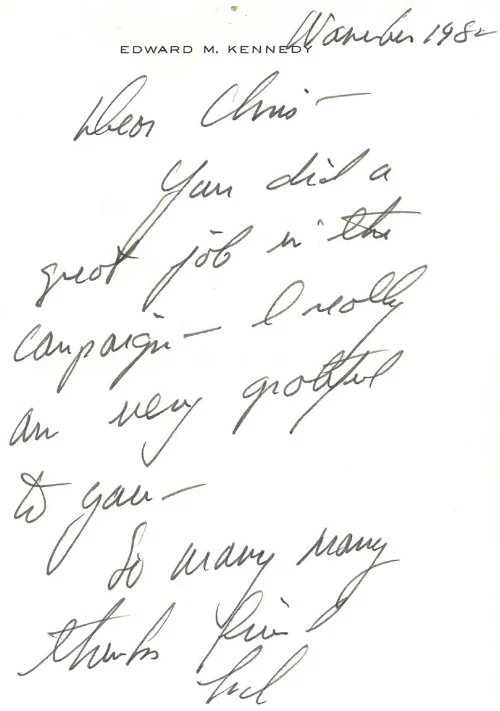 November 1982
EDWARD M. KENNEDY
Dear Chris —
You did a
great job in the
campaign — I really
am very grateful
to you —
So many many
thanks
Ted